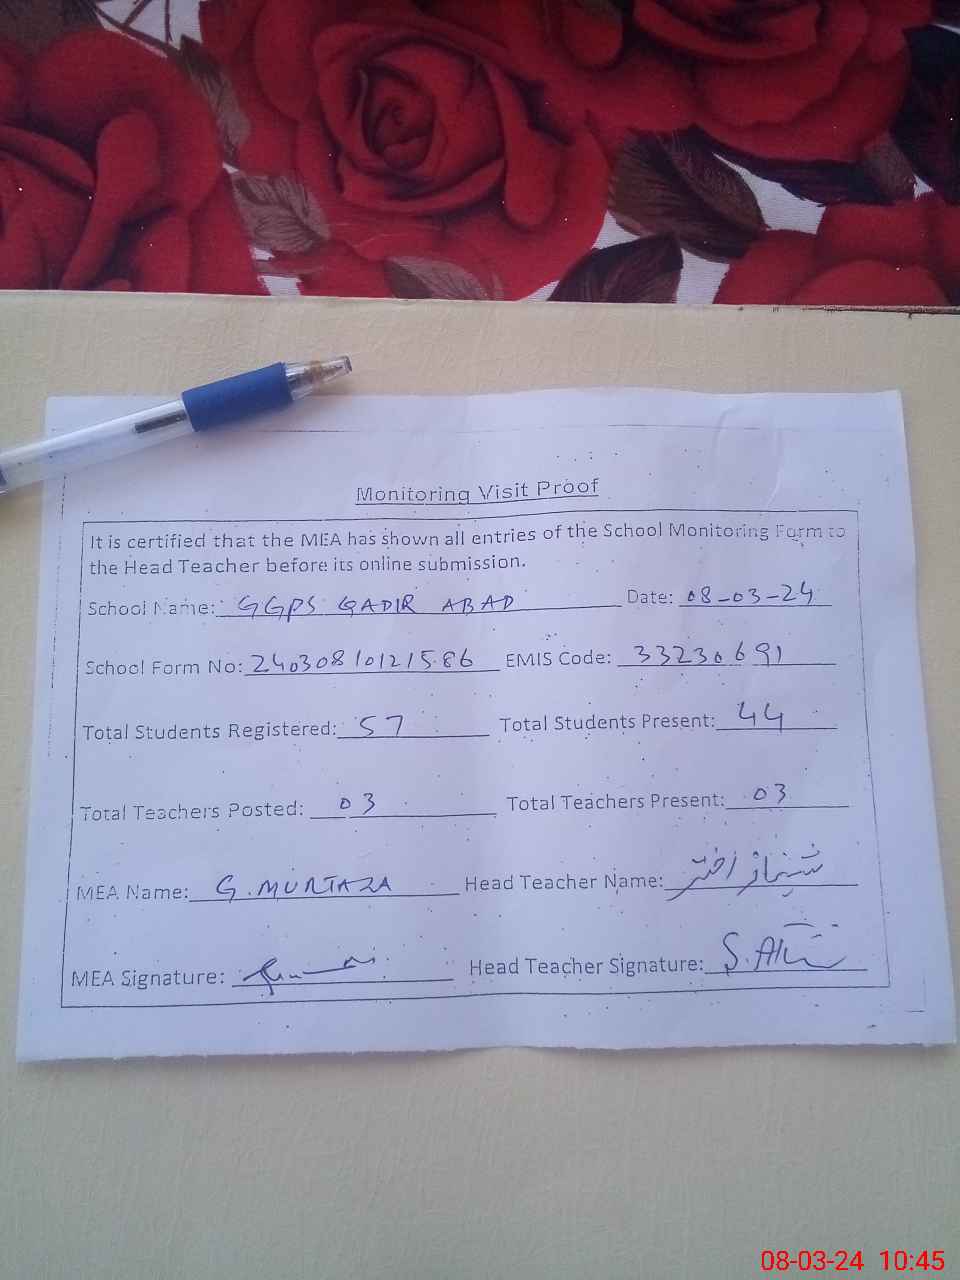 Monitoring Visit Proof
It is certified that the MEA has shown all entries of the School Monitoring Form to
the Head Teacher before its online submission.
School Name: GGPS QADIR ABAD Date: 08-03-24
School Form No: 24030810121586 EMIS Code: 33230691
Total Students Registered: 57 Total Students Present: 44
Total Teachers Posted: 03 Total Teachers Present: 03
MEA Name: G. MURTAZA Head Teacher Name: شہناز اختر
MEA Signature: Head Teacher Signature:
08-03-24 10:45